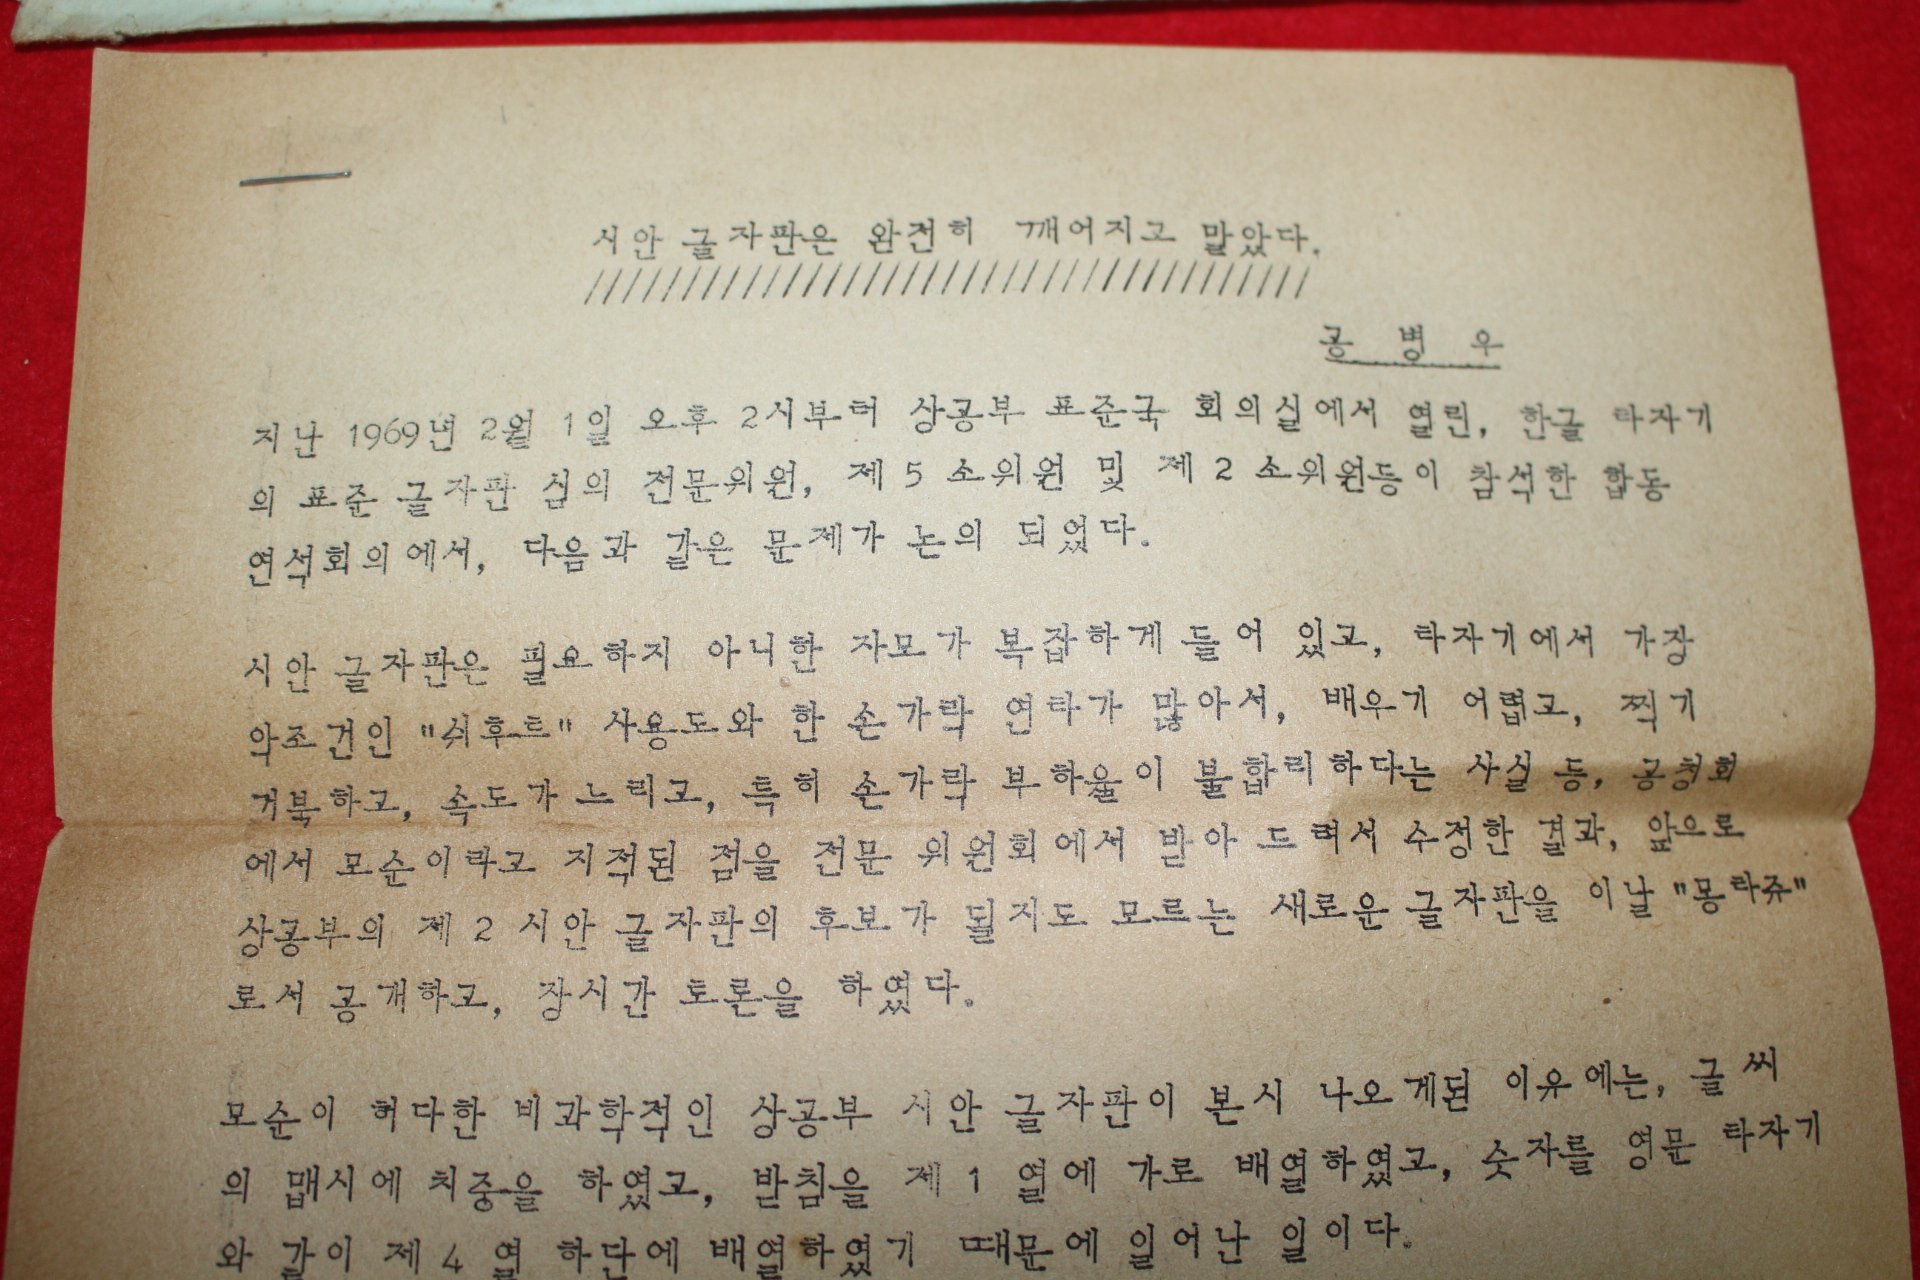 시안 글자판은 완전히 깨어지고 말았다.
////////////////////////////////////
공 병 우
지난 1969년 2월 1일 오후 2시부터 상공부 표준국 회의실에서 열린, 한글 타자기
의 표준 글자판 심의 전문위원, 제 5 소위원 및 제 2 소위원등이 참석한 합동
연석회의에서, 다음과 같은 문제가 논의 되었다.
시안 글자판은 필요하지 아니한 자모가 복잡하게 들어 있고, 타자기에서 가장
악조건인 "쉬후트" 사용도와 한 손가락 연타가 많아서, 배우기 어렵고, 찍기
거북하고, 속도가 느리고, 특히 손가락 부하율이 불합리하다는 사실 등, 공청회
에서 모순이라고 지적된 점을 전문 위원회에서 받아 드려서 수정한 결과, 앞으로
상공부의 제 2 시안 글자판의 후보가 될지도 모르는 새로운 글자판을 이날 "몽타쥬"
로서 공개하고, 장시간 토론을 하였다.
모순이 허다한 비과학적인 상공부 시안 글자판이 본시 나오게된 이유에는, 글씨
의 맵시에 치중을 하였고, 받침을 제 1 열에 가로 배열하였고, 숫자를 영문 타자기
와 같이 제 4 열 하단에 배열하였기 때문에 일어난 일이다.